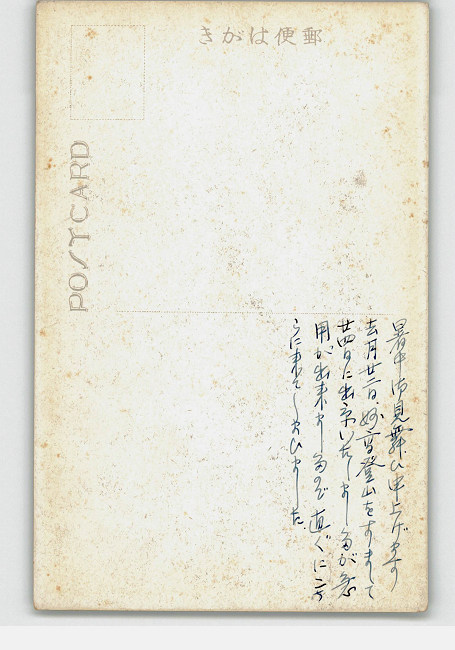 郵便はがき
POSTCARD
暑中御見舞ひ申上げます
去月廿二日、妙高登山をすまして
廿四日に出京いたしましたが急
用が出来ましたので直ぐにこち
らに来てしまひました.